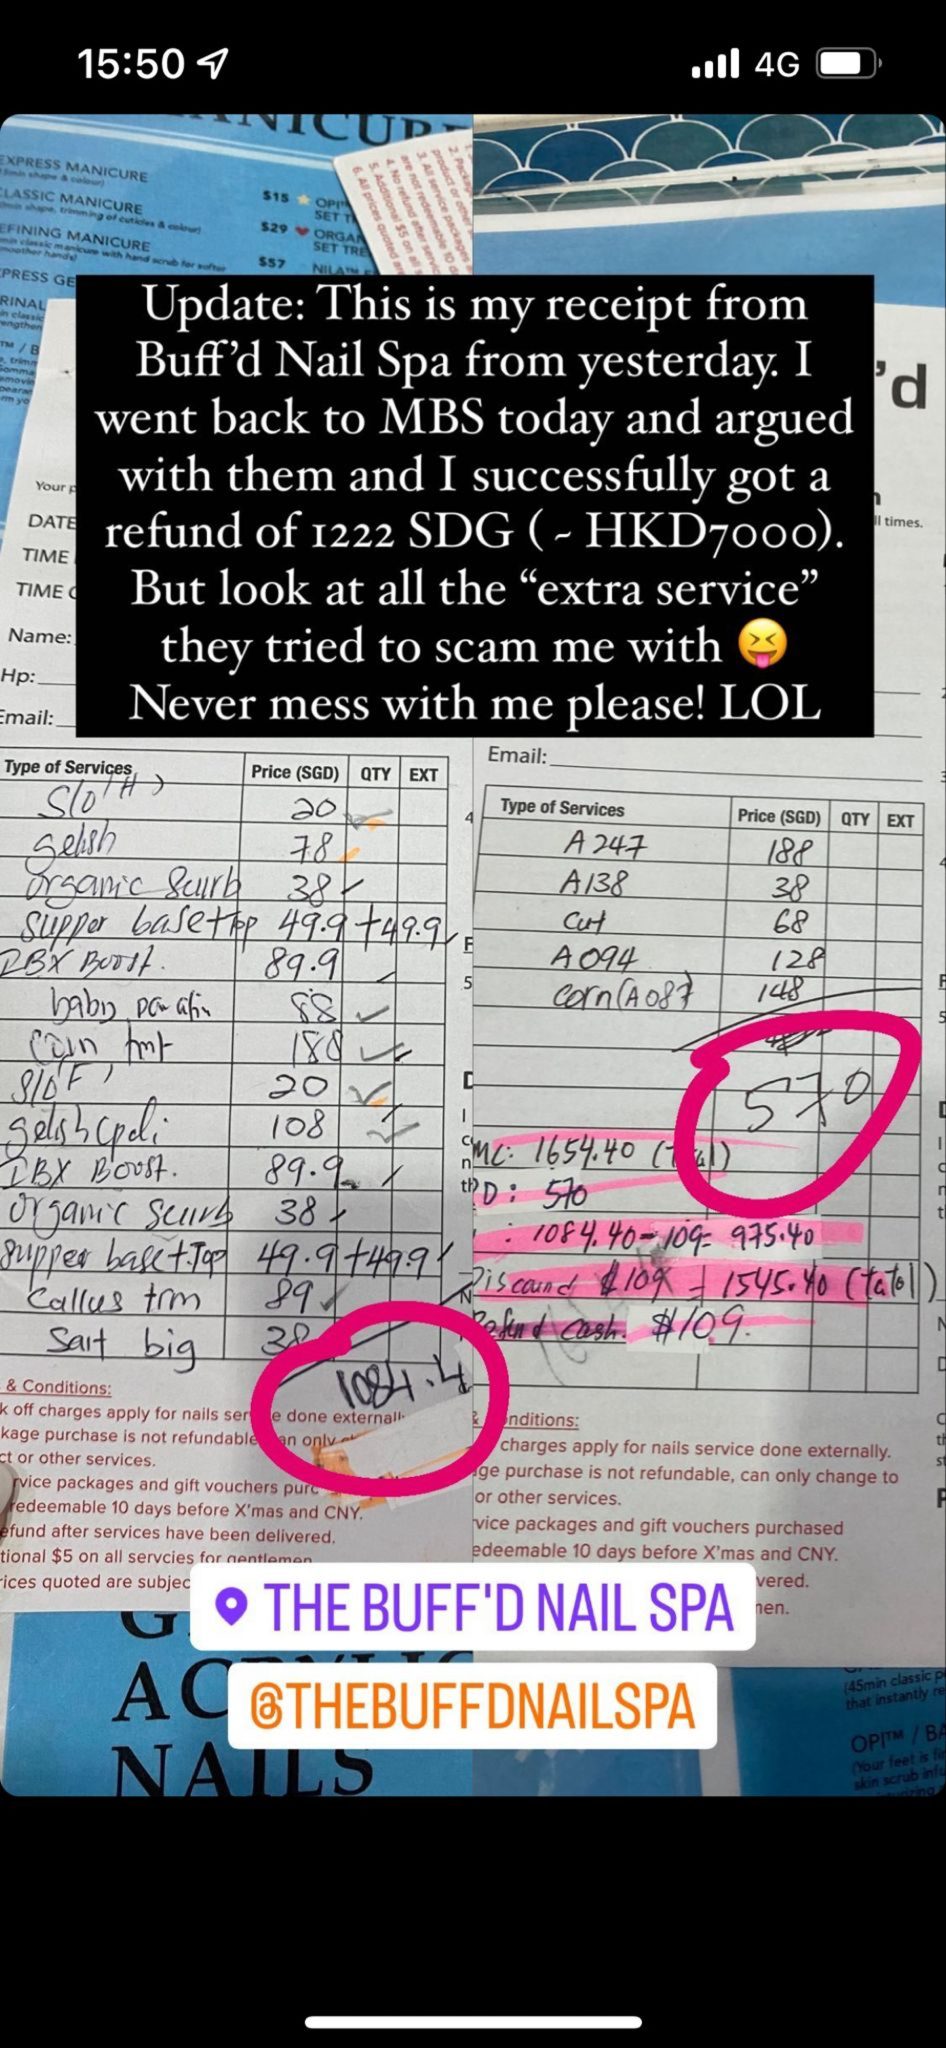 15:50
4G
MANICURE
EXPRESS MANICURE
$15
CLASSIC MANICURE
$29
$57
2. Packag
product or other
3. All service packages
are not redeemable 10 d
4. No refund after servic
5. Additional $5 on all s
6. All prices quoted are
Update: This is my receipt from
Buff'd Nail Spa from yesterday. I
went back to MBS today and argued
with them and I successfully got a
refund of 1222 SDG ( ~ HKD7000).
But look at all the “extra service”
they tried to scam me with 😝
Never mess with me please! LOL
'd
ll times.
Your p
DATE
TIME
TIME
Name:
Hp:
Email:
Type of Services Price (SGD) QTY EXT
20
gelish 78
organic Scurb 38
Supper base+top 49.9+49.9
IBX Boost. 89.9
baby parafin 88
Corn tmt 188
20
108
IBX Boost. 89.9
organic Scurb 38
Supper base+Top 49.9+49.9
Callus trm 89
Sait big 38
1084.4
Email:
Type of Services Price (SGD) QTY EXT
A247 188
A138 38
Cut 68
A094 128
Corn(A087 148
570
MC: 1654.40 (total)
D: 570
: 1084.40-109= 975.40
Discaund $109 = 1545.40 (total)
Refund cash. $109.
& Conditions:
k off charges apply for nails ser e done externall
kage purchase is not refundable an only
ct or other services.
rvice packages and gift vouchers purc
redeemable 10 days before X'mas and CNY.
efund after services have been delivered.
tional $5 on all servcies for gentlemen
ices quoted are subjec
onditions:
charges apply for nails service done externally.
ge purchase is not refundable, can only change to
or other services.
rvice packages and gift vouchers purchased
edeemable 10 days before X'mas and CNY.
vered.
men.
THE BUFF'D NAIL SPA
@THEBUFFDNAILSPA
ACRYLIC
NAILS
(45min classic p
that instantly re
OPI™ / BA
(Your feet is fir
skin scrub infu